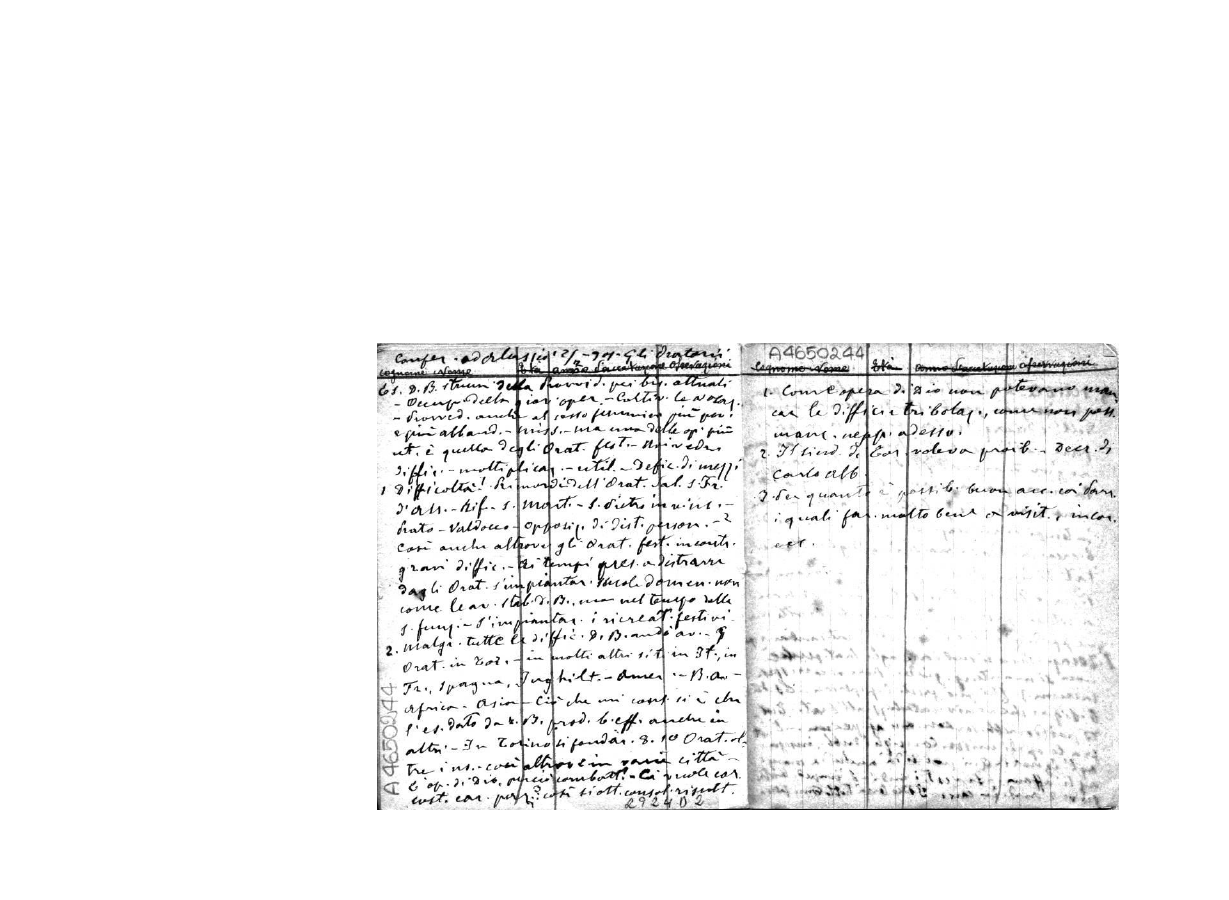 Confer. ad Alassio - Gli Oratorii
Cognome Nome Età anno Osservazioni
E s. D. B. strum. della Provvid. pei bis. attuali
- Occup. della giov. oper. - Coltiv. le vocaz.
- Provved. anche al sesso femminin. più pov.
e più abband. - Miss. - Ma una delle op. più
ut. è quella degli Orat. fest. -
diffic. - moltiplicaz. - util. - Defic. di mezzi
1 Difficoltà! Primordi dell'Orat. dal S. Fr.
d'Ass. - Rif. - S. Mart. - S. Pietro in vinc. -
Prato - Valdocco - Opposiz. di dist. person. - 2
Così anche altrove gli Orat. fest. incontr.
gravi diffic. - Ai tempi pres. a distrarre
dagli Orat. s'impiantar. scuole domen. non
come le av. stab. D. B., ma nel tempo delle
s. funz. - S'impiantar. i ricreat. festivi
2. Malgr. tutte le diffic. D. B. andò av. - 3
Orat. in Tor. - in molti altri siti in It., in
Fr., Spagna, Inghilt. - Amer. - B. A. -
Africa - Asia - Ciò che mi cons. si è che
l'es. dato da D. B. prod. b. eff. anche in
altri - In Torino si fondar. 8. 10 Orat. ol-
tre i ns. - così altrove in varie città -
È op. di Dio, perciò combatt. - Ci vuole cor.
cost. car. paz.: così si ott. consol. risult.
292402
A4650294
A4650244
Cognome Nome Età anno Osservazioni
1. Com'è opera di Dio non potevano man
car le diffic. e tribolaz., come non poss.
manc. nepp. adesso.
2. Il Sind. di Tor. voleva proib. - Decr. di
Carlo Alb.
3. Per quanto è possib. buon acc. coi Parr.
i quali far. molto bene a visit., incor.
ecc.